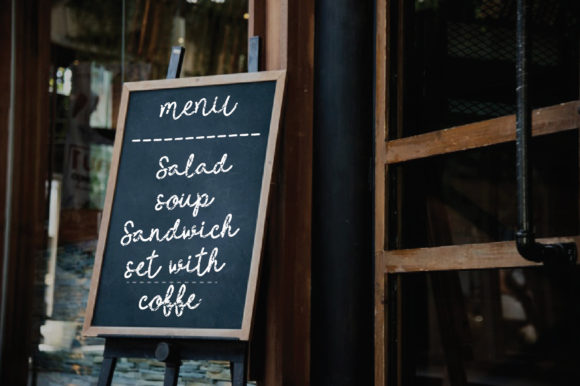 menu
Salad
soup
Sandwich
set with
coffe